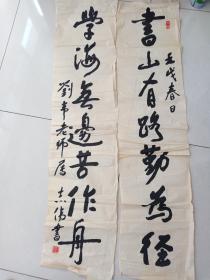 書山有路勤為徑
壬戌春日
學海無邊苦作舟
劉韋老師屬
志偉書